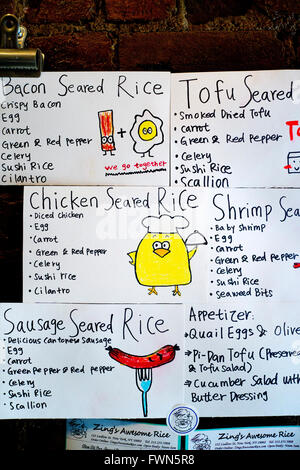 Bacon Seared Rice
Crispy Bacon
Egg
Carrot
Green & Red Pepper
Celery
Sushi Rice
Cilantro
we go together
Tofu Seared
• Smoked Dried Tofu
• Carrot
• Green & Red Pepper
• Celery
• Sushi Rice
• Scallion
Chicken Seared Rice
• Diced Chicken
• Egg
• Carrot
• Green & Red Pepper
• Celery
• Sushi Rice
• Cilantro
Shrimp Sea
• Baby Shrimp
• Egg
• Carrot
• Green & Red Pepper
• Celery
• Sushi Rice
• Seaweed Bits
Sausage Seared Rice
• Delicious Cantonese Sausage
• Egg
• Carrot
• Green Pepper & Red Pepper
• Celery
• Sushi Rice
• Scallion
Appetizer:
* Quail Eggs & Olive
* Pi-Dan Tofu (Preserve
& Tofu Salad)
* Cucumber Salad with
Butter Dressing
Zing's Awesome Rice
Zing's Awesome Rice